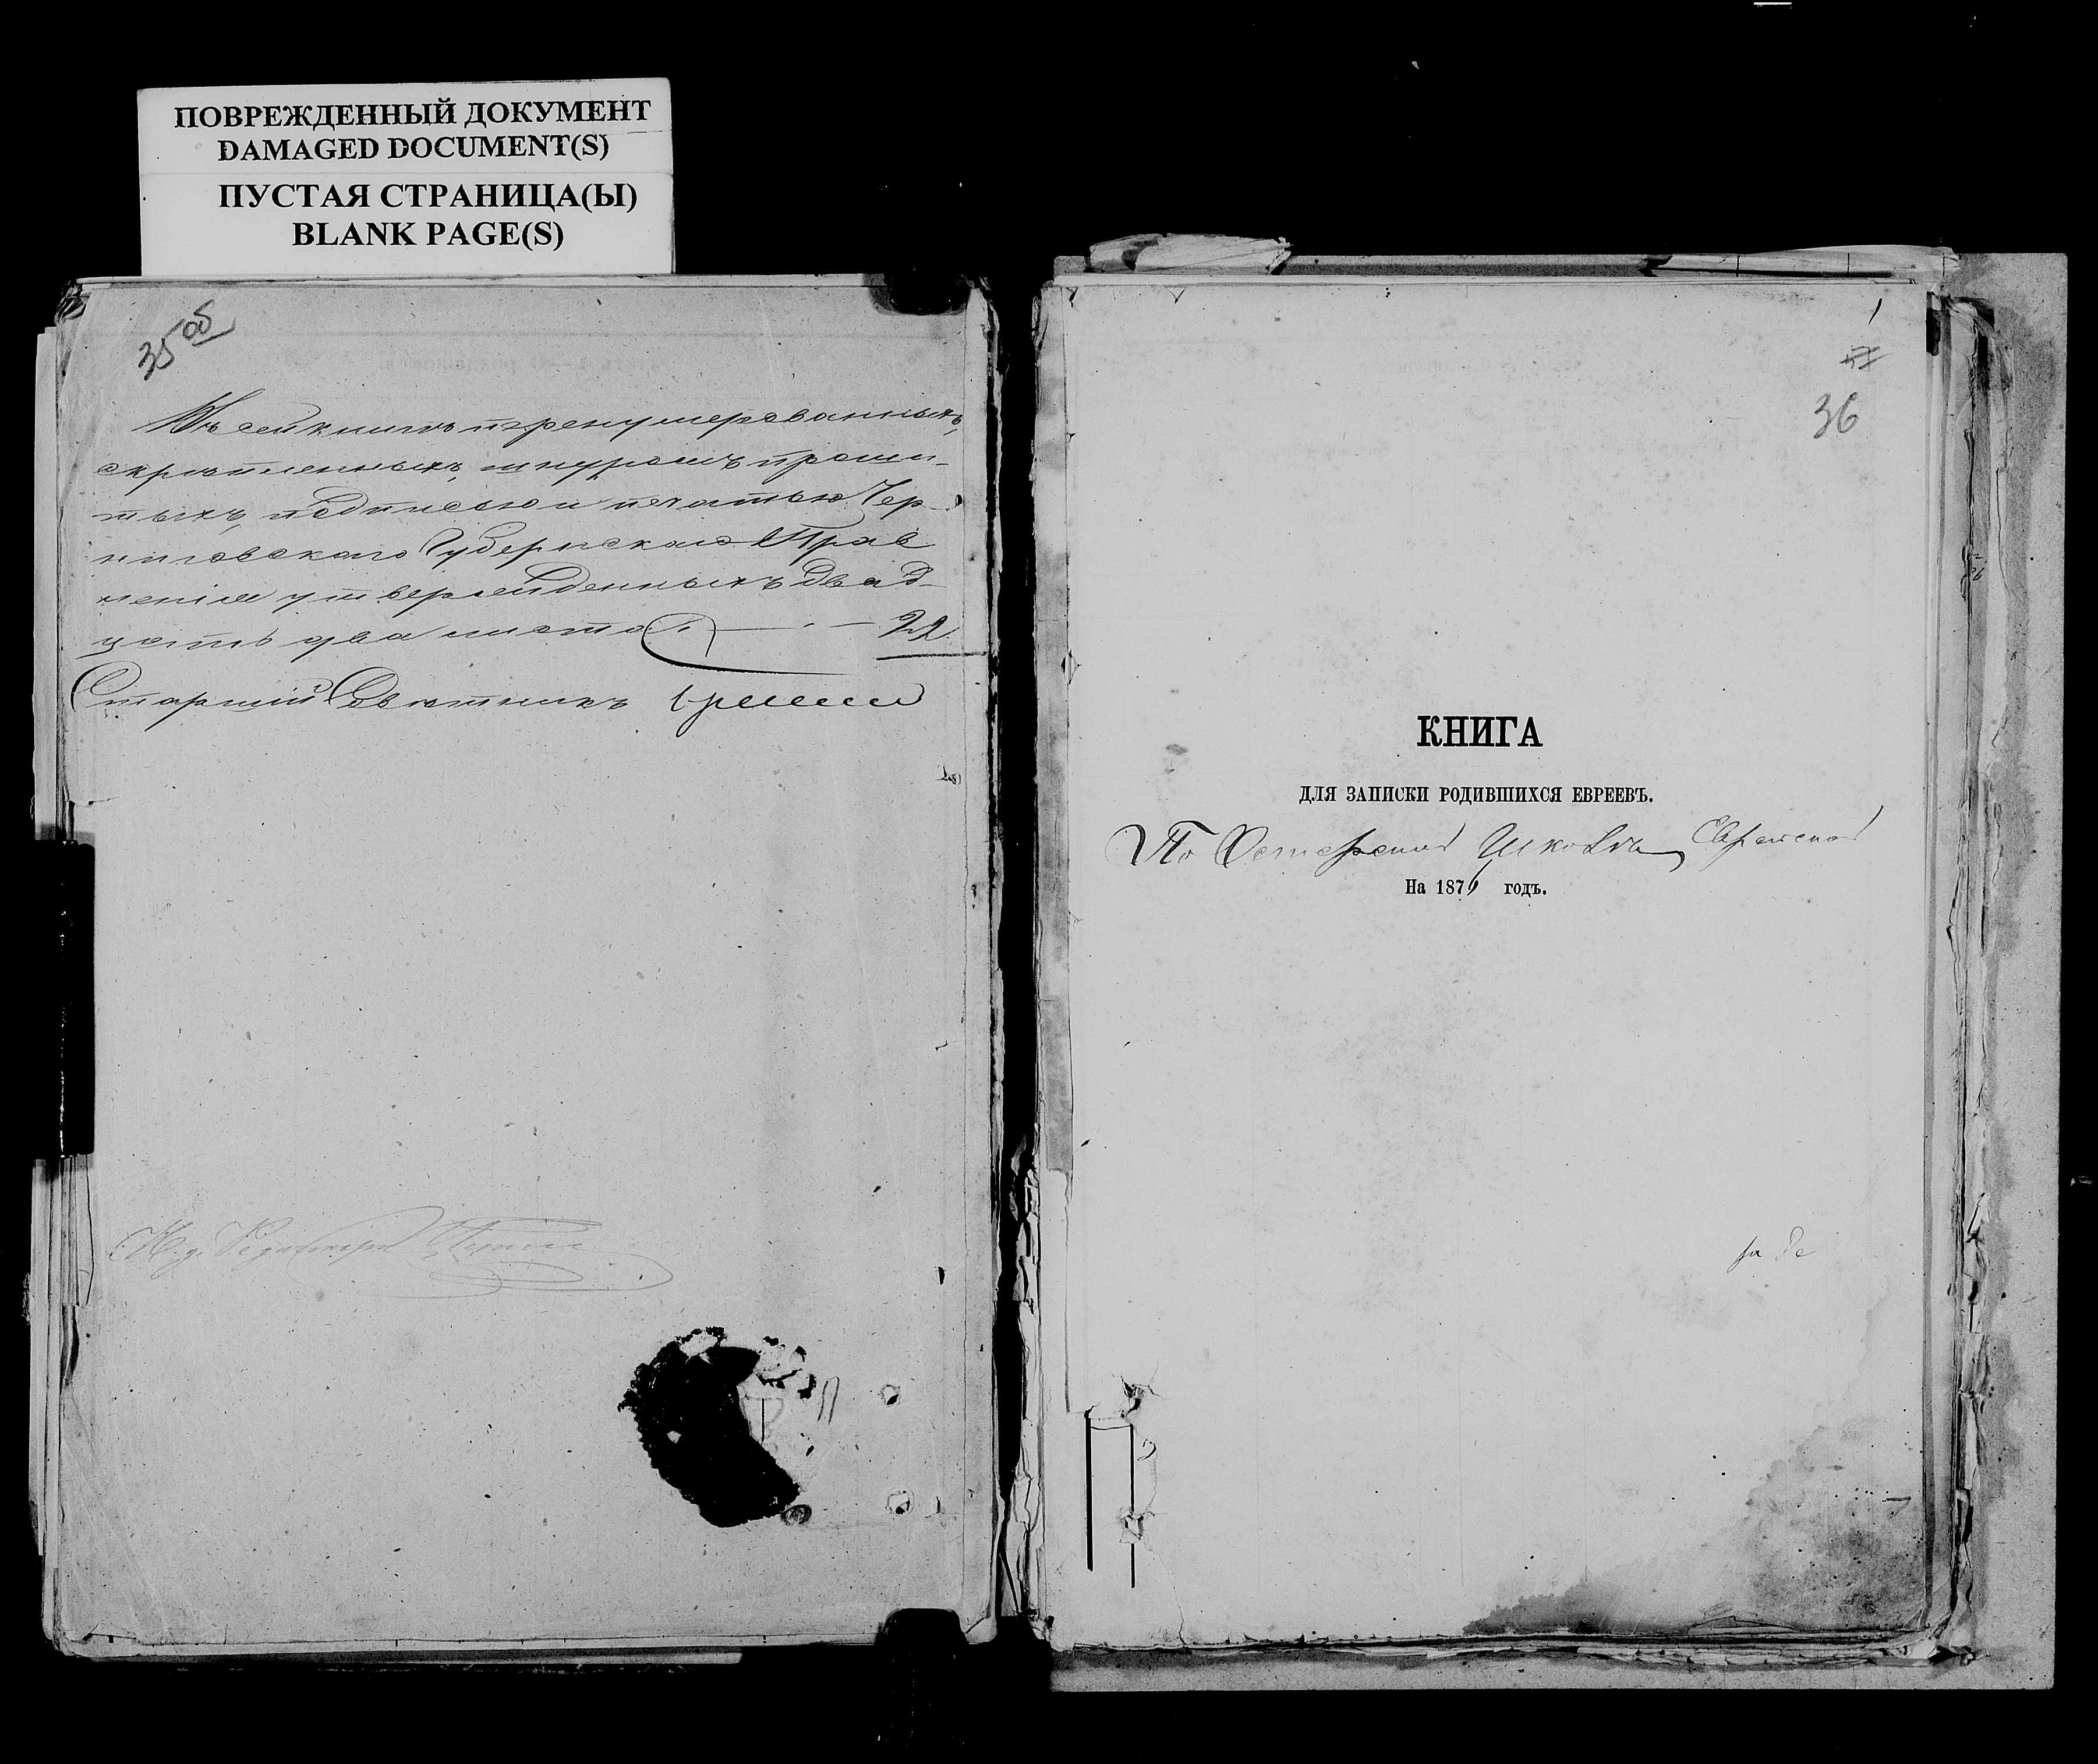 ПОВРЕЖДЕННЫЙ ДОКУМЕНТ
DAMAGED DOCUMENT(S)
ПУСТАЯ СТРАНИЦА(Ы)
BLANK PAGE(S)
35 об
Въ сей книге пронумерованныхъ,
скрѣпленныхъ, шнуромъ проши-
тыхъ, подписью и печатью Чер-
ниговскаго Губернскаго Прав
ленія утвержденныхъ двад-
цать два листа 22
Старшій Совѣтникъ
И. д.
1
36
КНИГА
ДЛЯ ЗАПИСКИ РОДИВШИХСЯ ЕВРЕЕВЪ.
По Остерской Школѣ Еврейской
На 187 годъ.